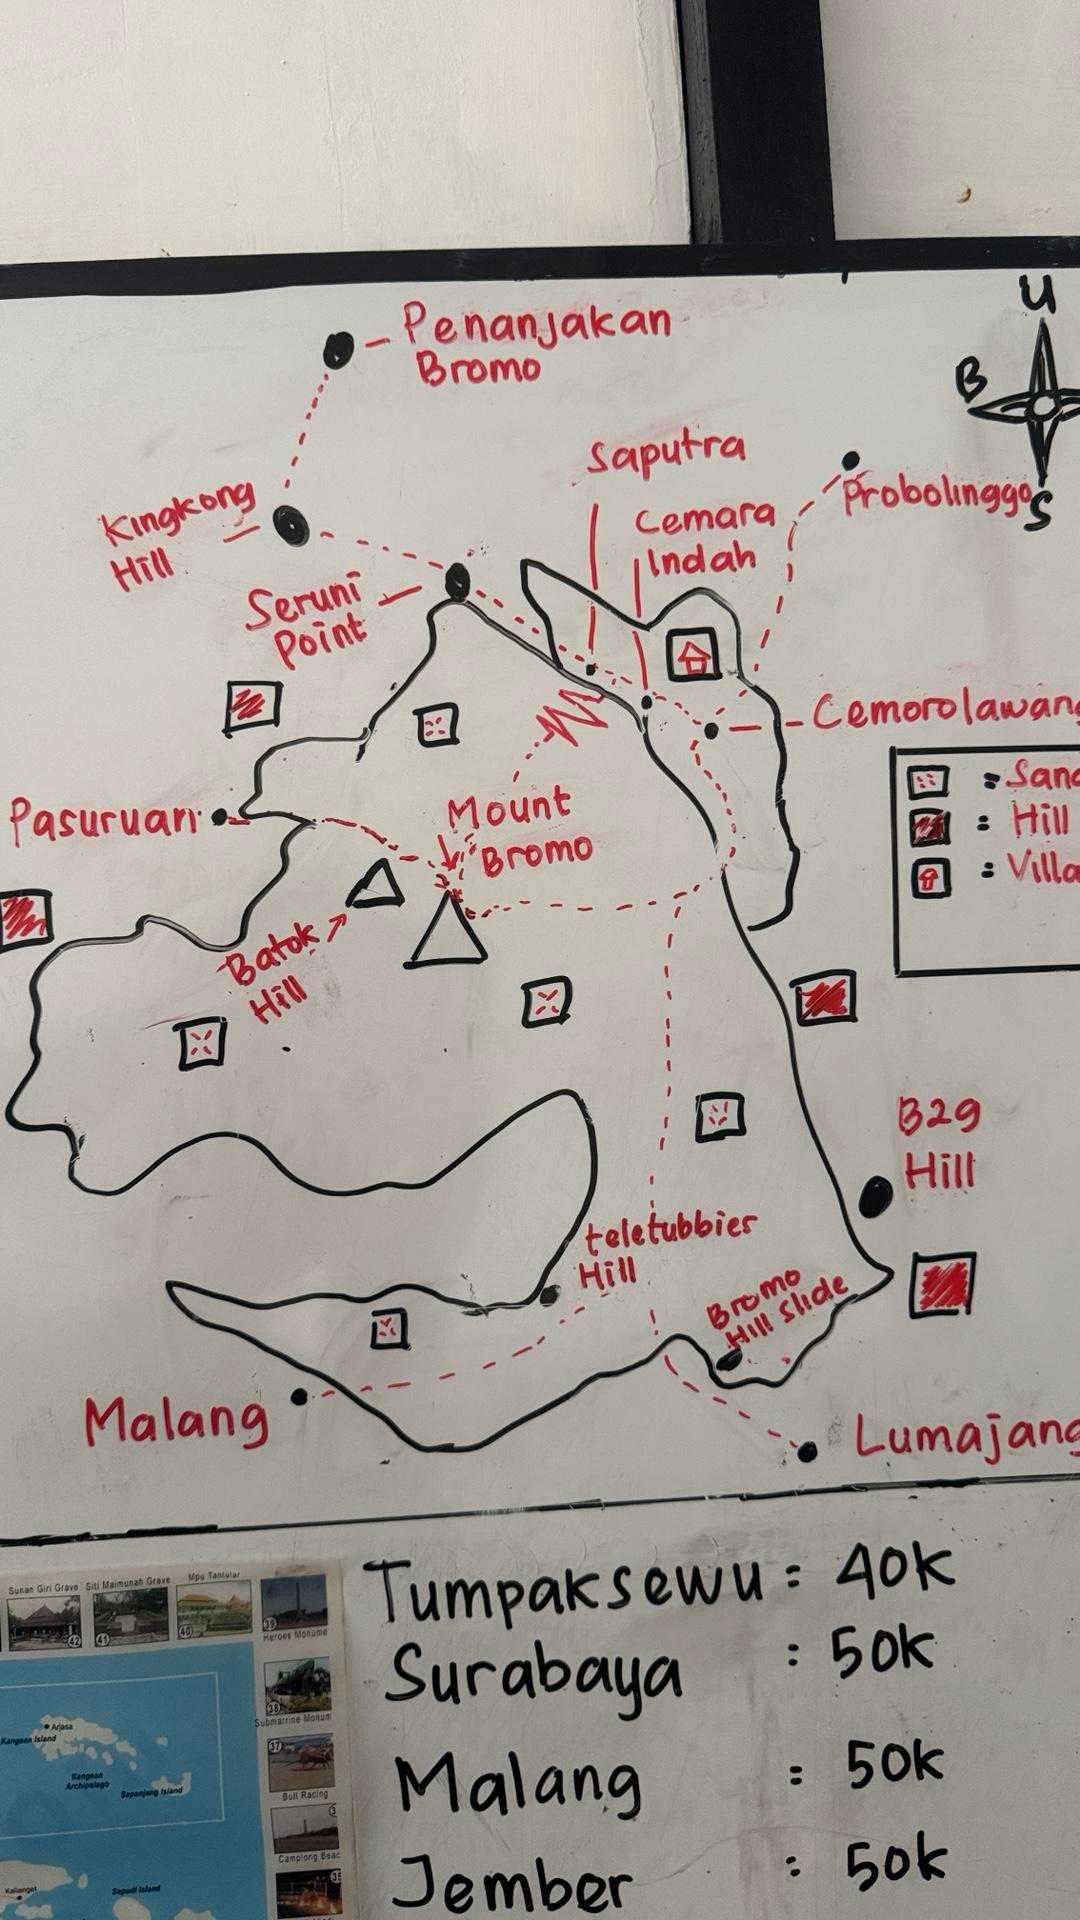 U
B
S
Penanjakan
Bromo
Saputra
Cemara
Indah
Probolinggo
Kingkong
Hill
Seruni
Point
Cemorolawang
Pasuruan
Mount
Bromo
: Sand
: Hill
: Villa
Batok
Hill
B29
Hill
teletubbier
Hill
Bromo
Hill Slide
Malang
Lumajang
Tumpaksewu : 40k
Surabaya : 50k
Malang : 50k
Jember : 50k
Sunan Giri Grave
Siti Maimunah Grave
Mpu Tantular
42
41
40
39
Heroes Monume
38
Submarrine Monum
37
Bull Racing
Camplong Beac
Arjasa
Kangean Island
Kangean
Archipelago
Sapanjang Island
Kalianget
Sapudi Island